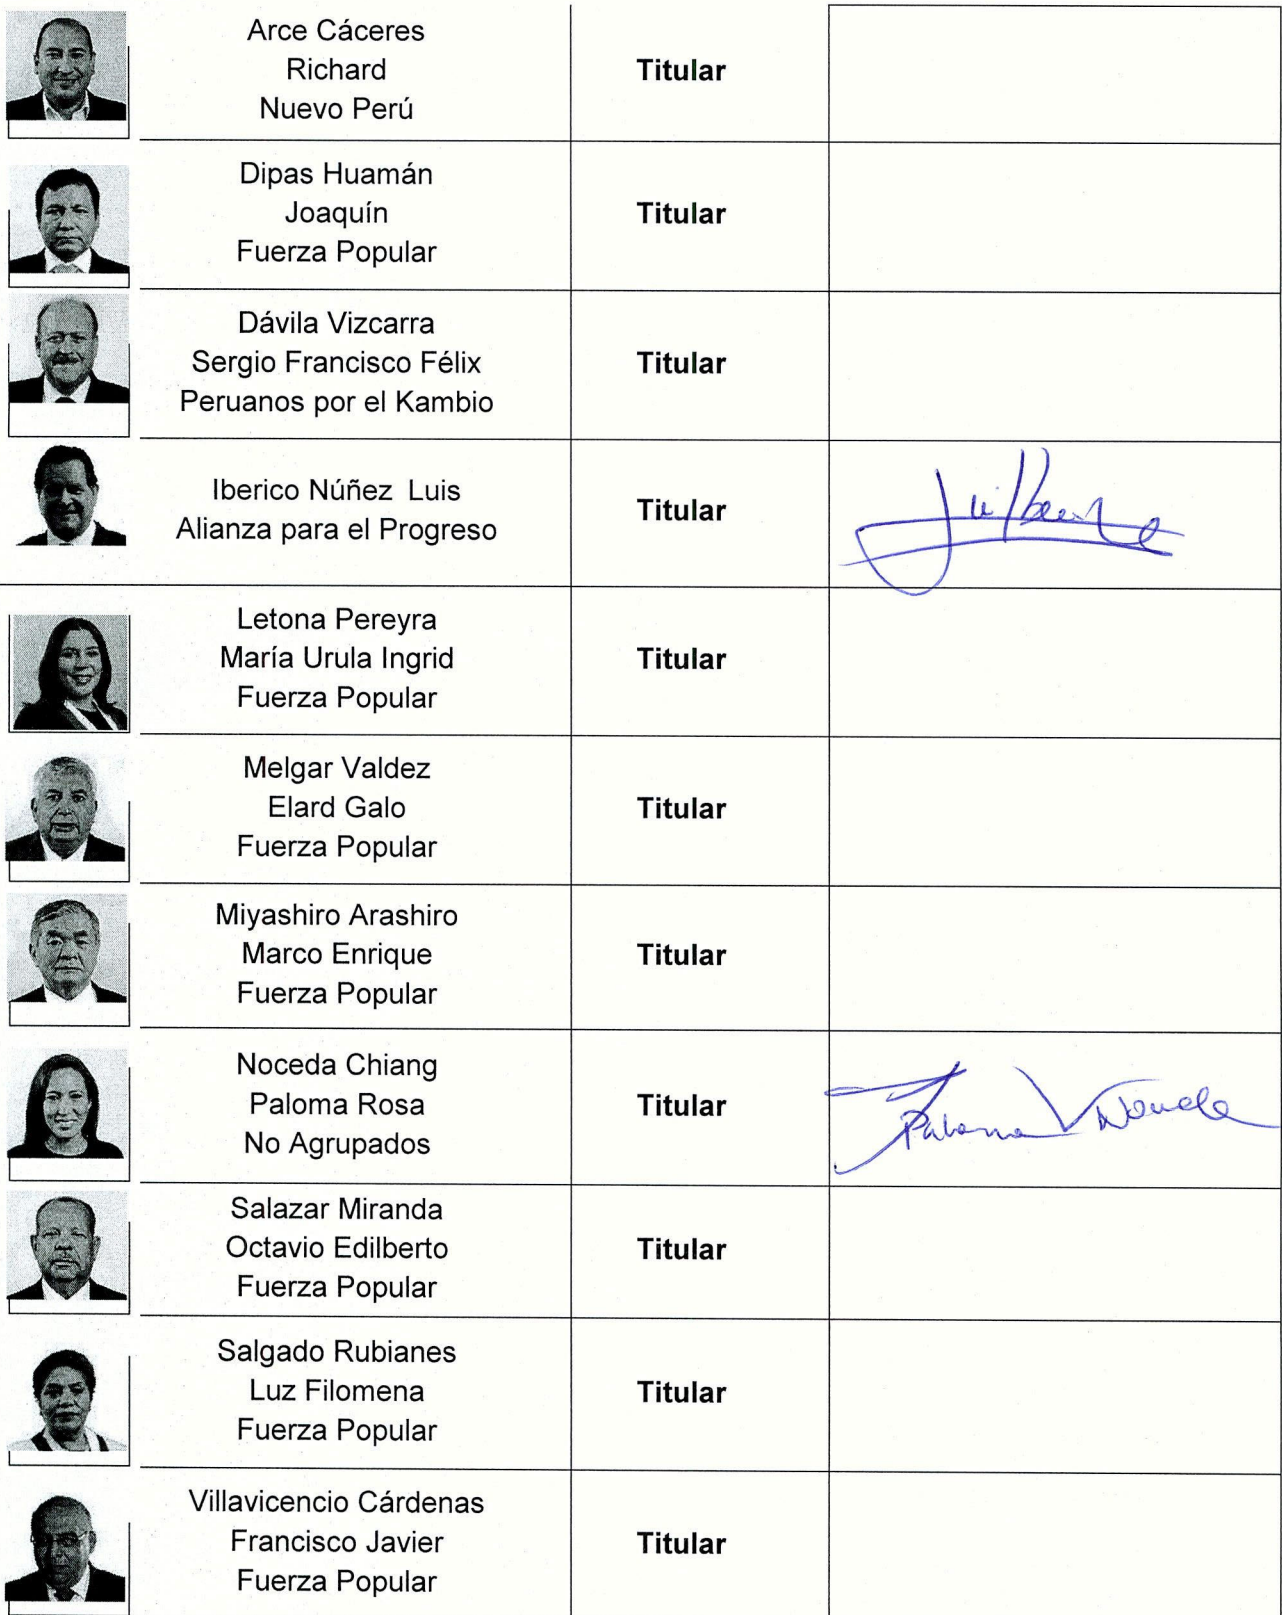 Arce Cáceres
Richard
Nuevo Perú
Titular
Dipas Huamán
Joaquín
Fuerza Popular
Titular
Dávila Vizcarra
Sergio Francisco Félix
Peruanos por el Kambio
Titular
Iberico Núñez Luis
Alianza para el Progreso
Titular
Letona Pereyra
María Urula Ingrid
Fuerza Popular
Titular
Melgar Valdez
Elard Galo
Fuerza Popular
Titular
Miyashiro Arashiro
Marco Enrique
Fuerza Popular
Titular
Noceda Chiang
Paloma Rosa
No Agrupados
Titular
Paloma
Salazar Miranda
Octavio Edilberto
Fuerza Popular
Titular
Salgado Rubianes
Luz Filomena
Fuerza Popular
Titular
Villavicencio Cárdenas
Francisco Javier
Fuerza Popular
Titular